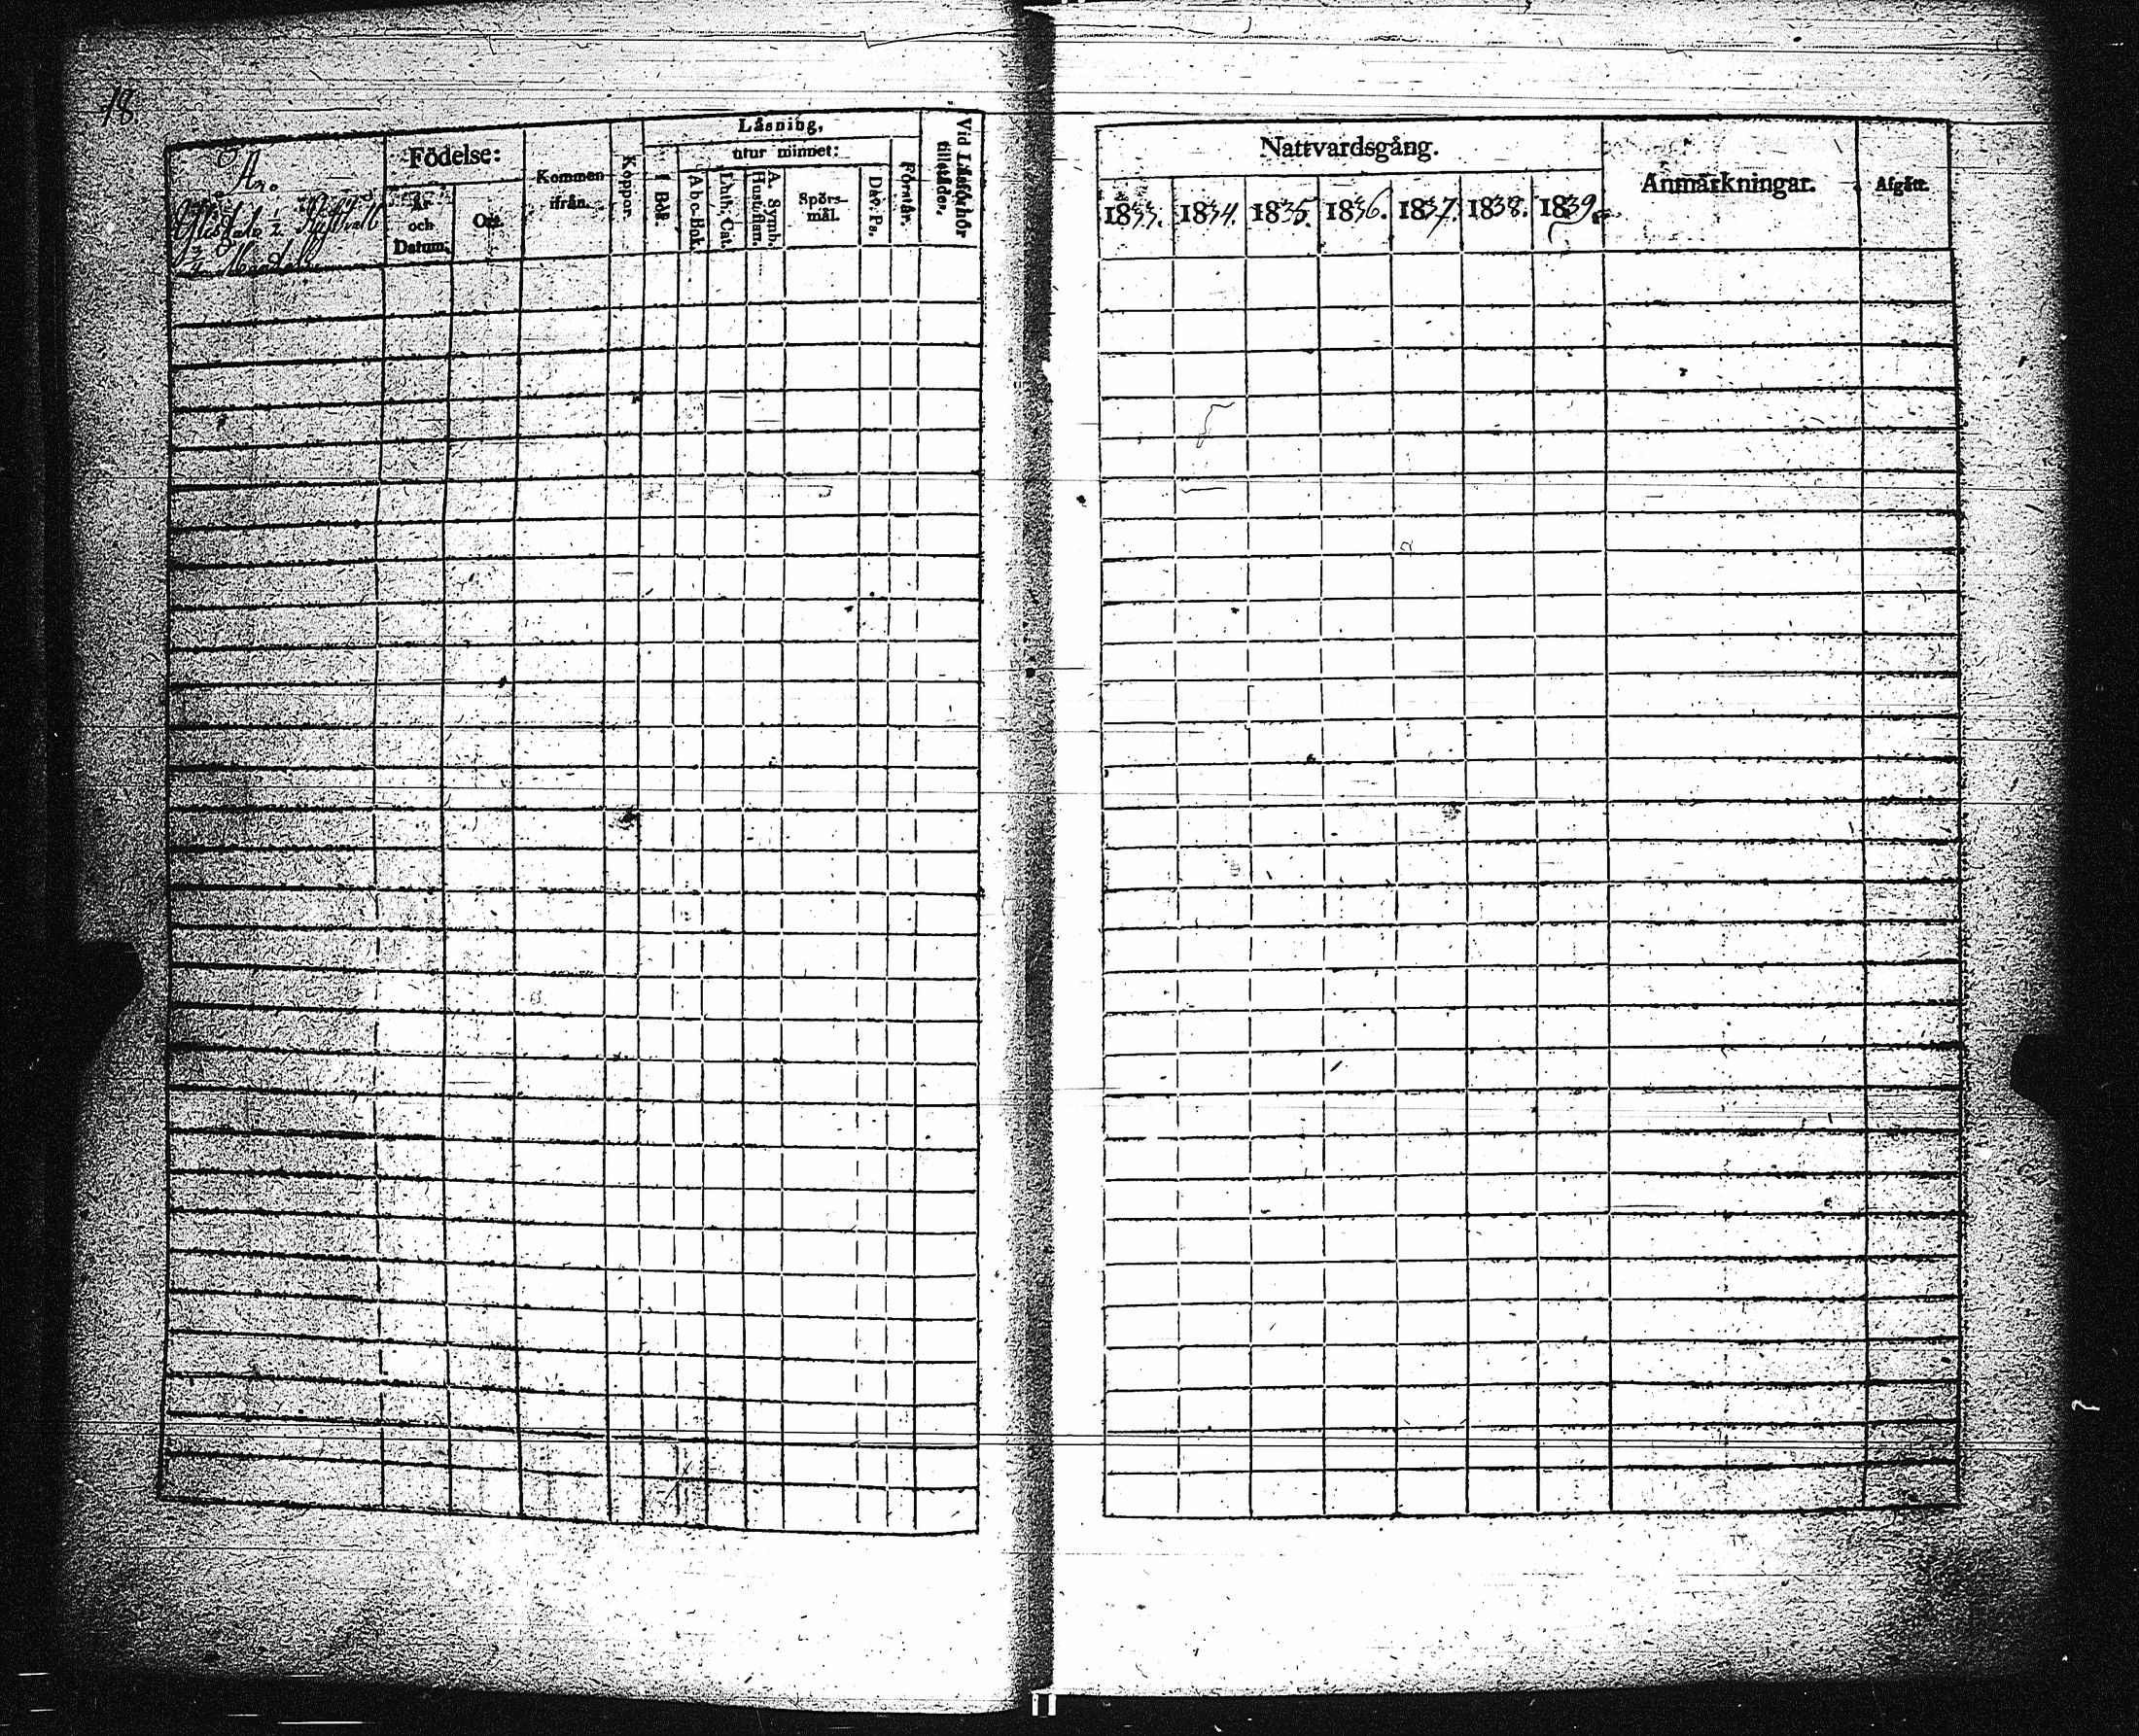 18
Födelse:
År och Datum.
Ort.
Kommen ifrån.
Koppor.
Läsning,
utur minnet:
I Bok.
Abc-Bok.
Luth. Cat.
A. Symb. Hustaflan.
Spörsmål.
Dav. Ps.
Förstår.
Vid Läsförhör tillstädes.
Nattvardsgång.
1833.
1834.
1835.
1836.
1837.
1838.
1839.
Anmärkningar.
Afgått.